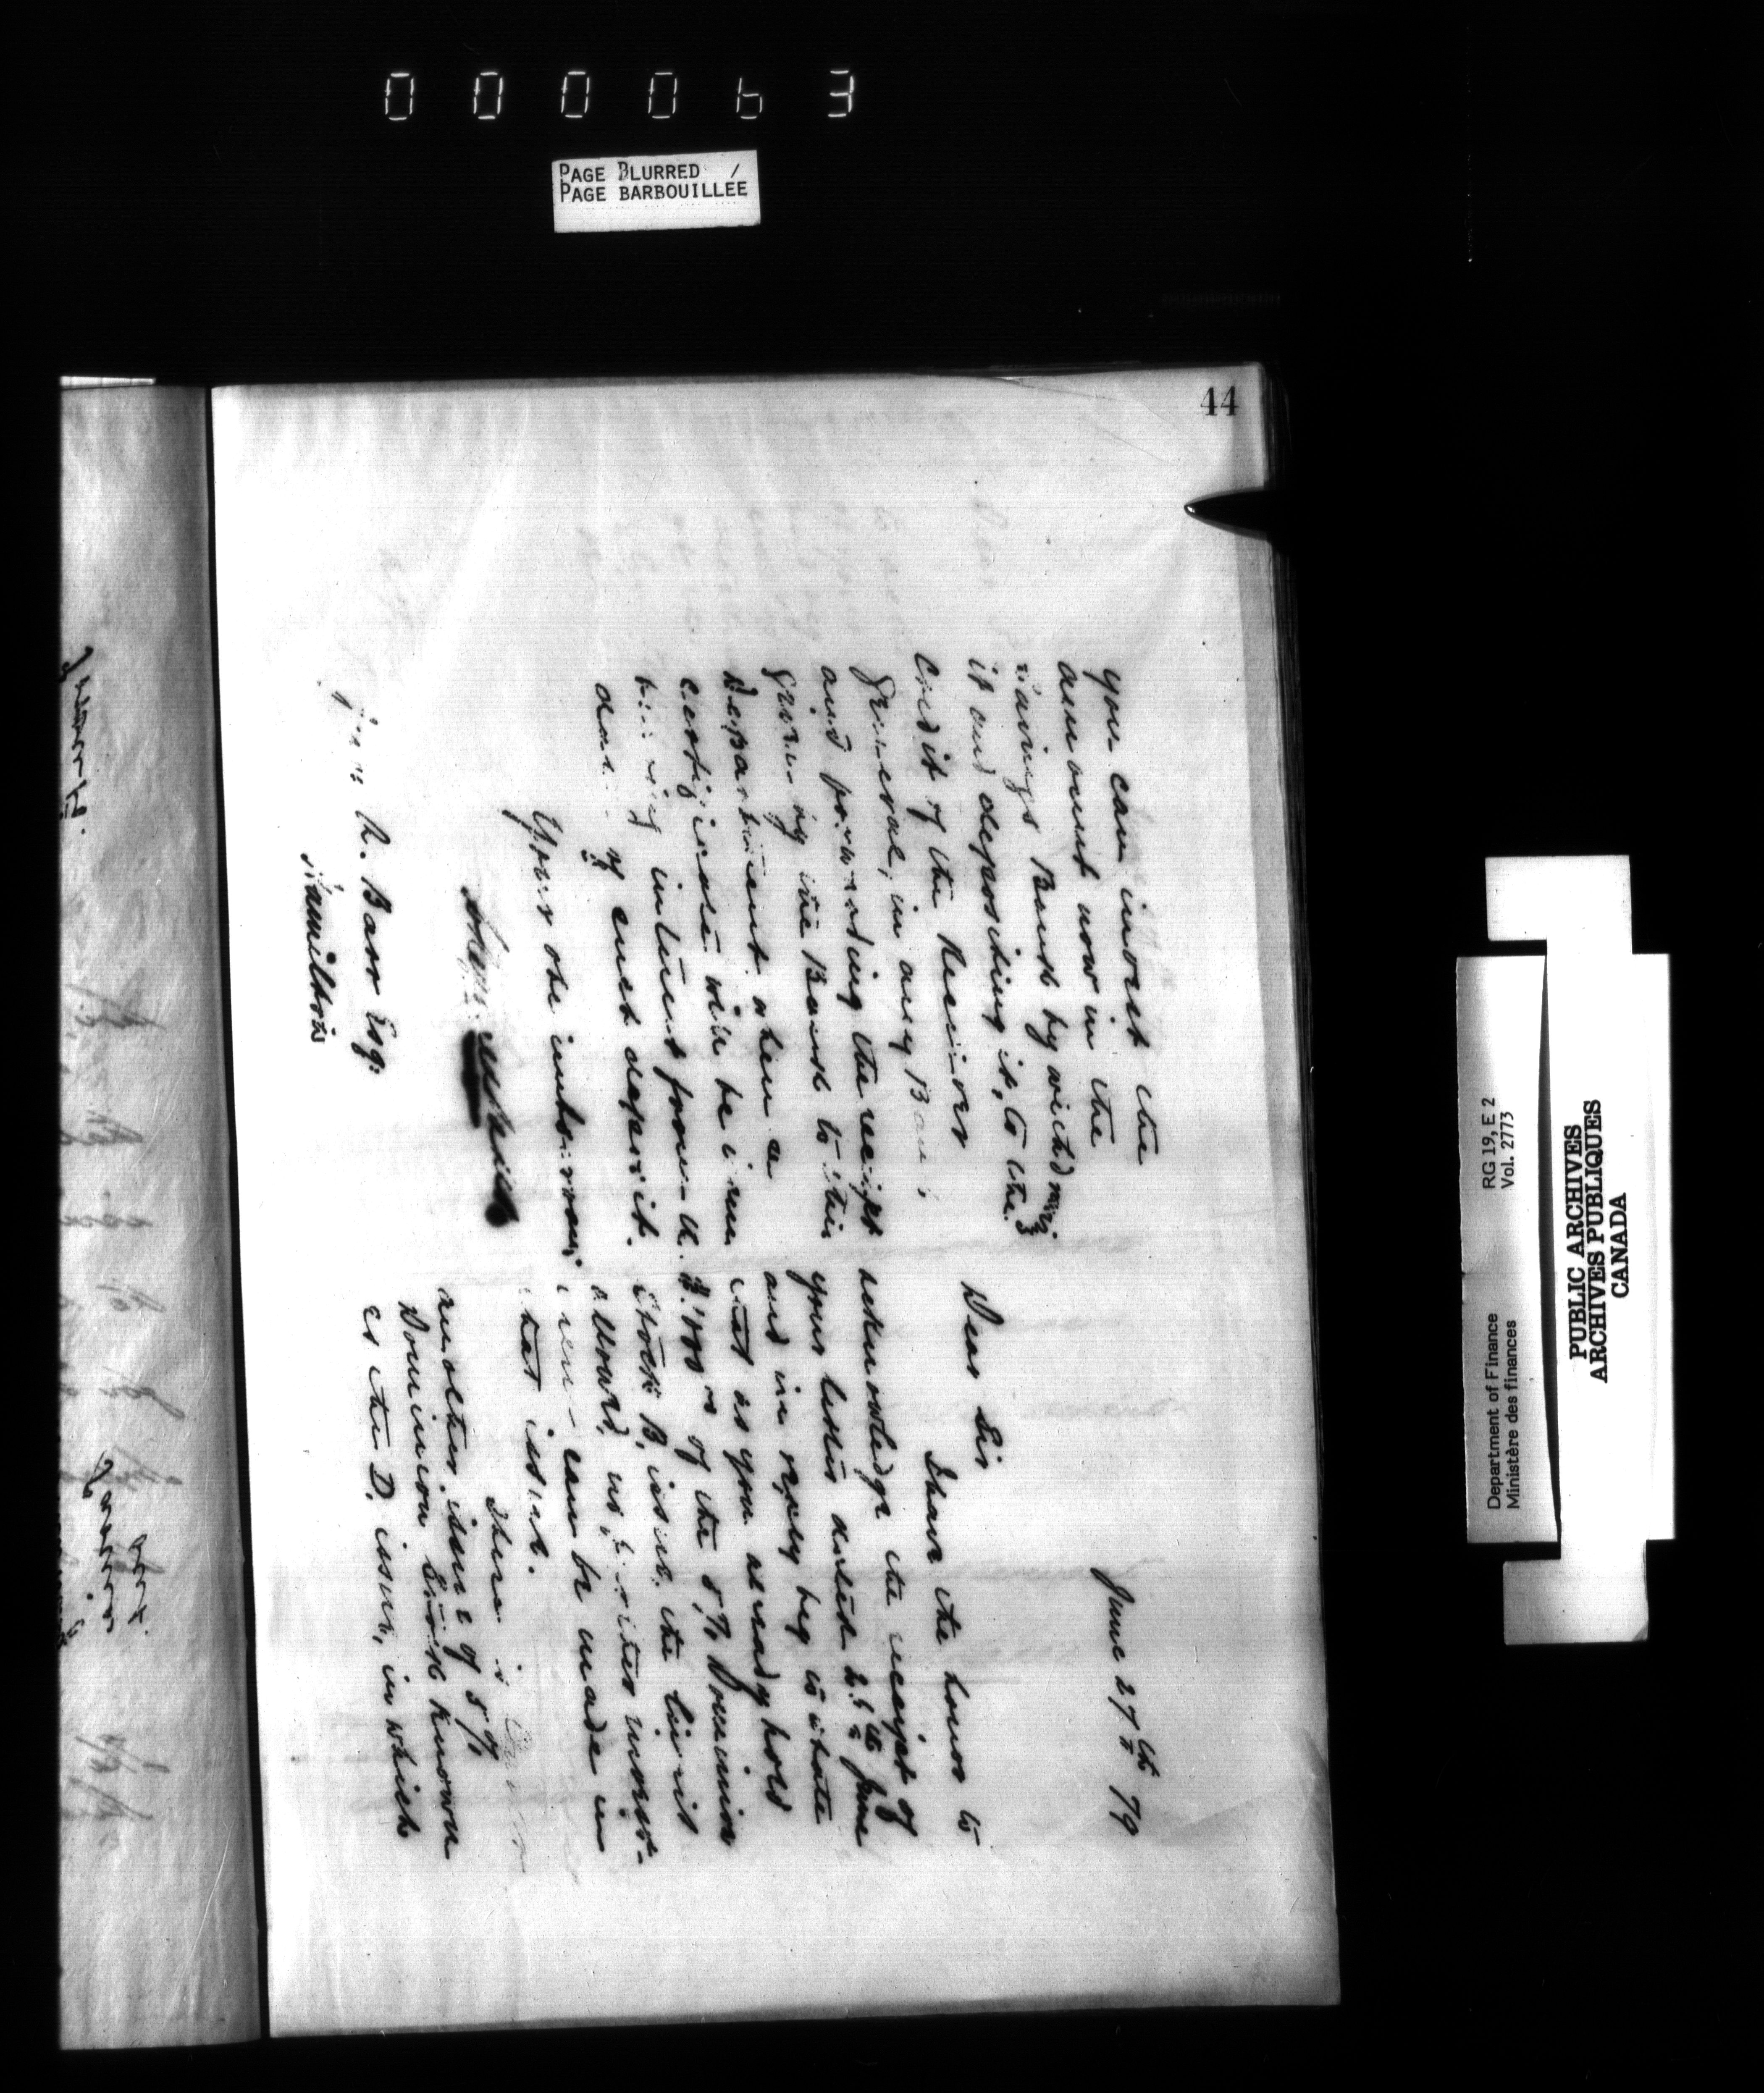 000063
PAGE BLURRED /
PAGE BARBOUILLEE
44
June 27th 79
Dear Sir
I have the honor to
acknowledge the receipt of
your letter dated 25th June
and in reply beg to state
that as you already hold
of the 5% Dominion
Stock B. issue, the limit
allowed, no further invest-
ment can be made in
that issue.
There is
another issue of 5%
Dominion Stock known
as the D. issue, in which
you can invest the
amount now in the
Savings Bank by withdrawing
it and depositing it, to the
credit of the Receiver
General, in any Bank
and forwarding the receipt
given by the Bank to this
Department when a
certificate will be issued
bearing interest from the
date of such deposit.
Your obt
R. Barr Esq.
Hamilton
RG 19, E 2
Vol. 2773
Department of Finance
Ministère des finances
PUBLIC ARCHIVES
ARCHIVES PUBLIQUES
CANADA